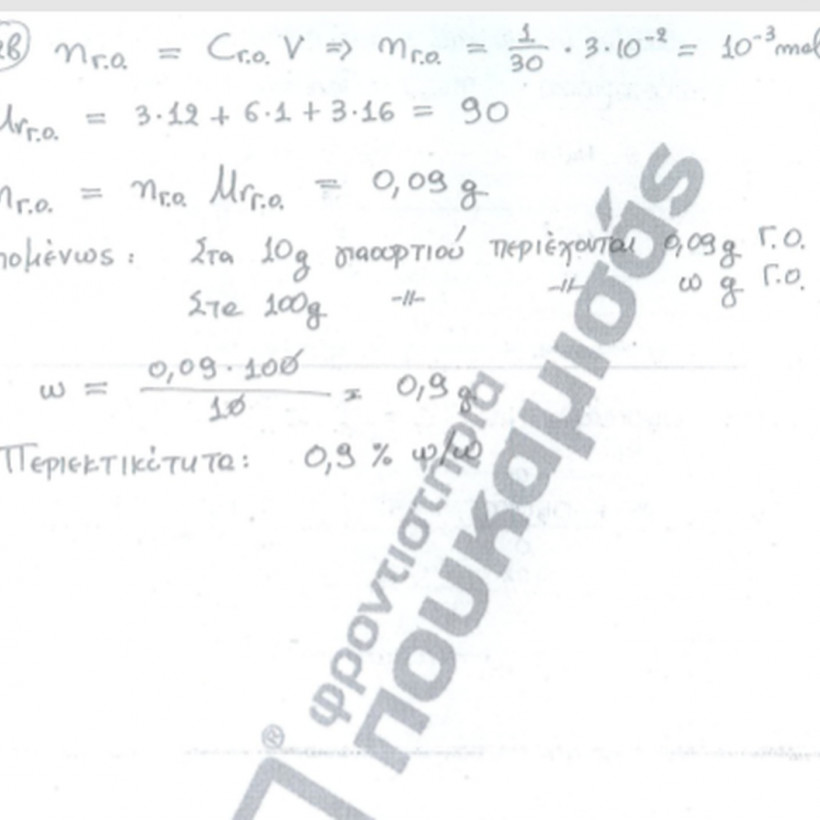 2β) n Γ.Ο. = C Γ.Ο. V => n Γ.Ο. = 1/30 · 3·10⁻² = 10⁻³ mol
Mr Γ.Ο. = 3·12 + 6·1 + 3·16 = 90
m Γ.Ο. = n Γ.Ο. Mr Γ.Ο. = 0,09 g
πομένως: Στα 10g γιαουρτιού περιέχονται 0,09g Γ.Ο.
Στα 100g -//- -//- ω g Γ.Ο.
ω = 0,09·100/10 = 0,9 g
Περιεκτικότητα: 0,9 % w/w
φροντιστήρια
πουκαμισάς
®